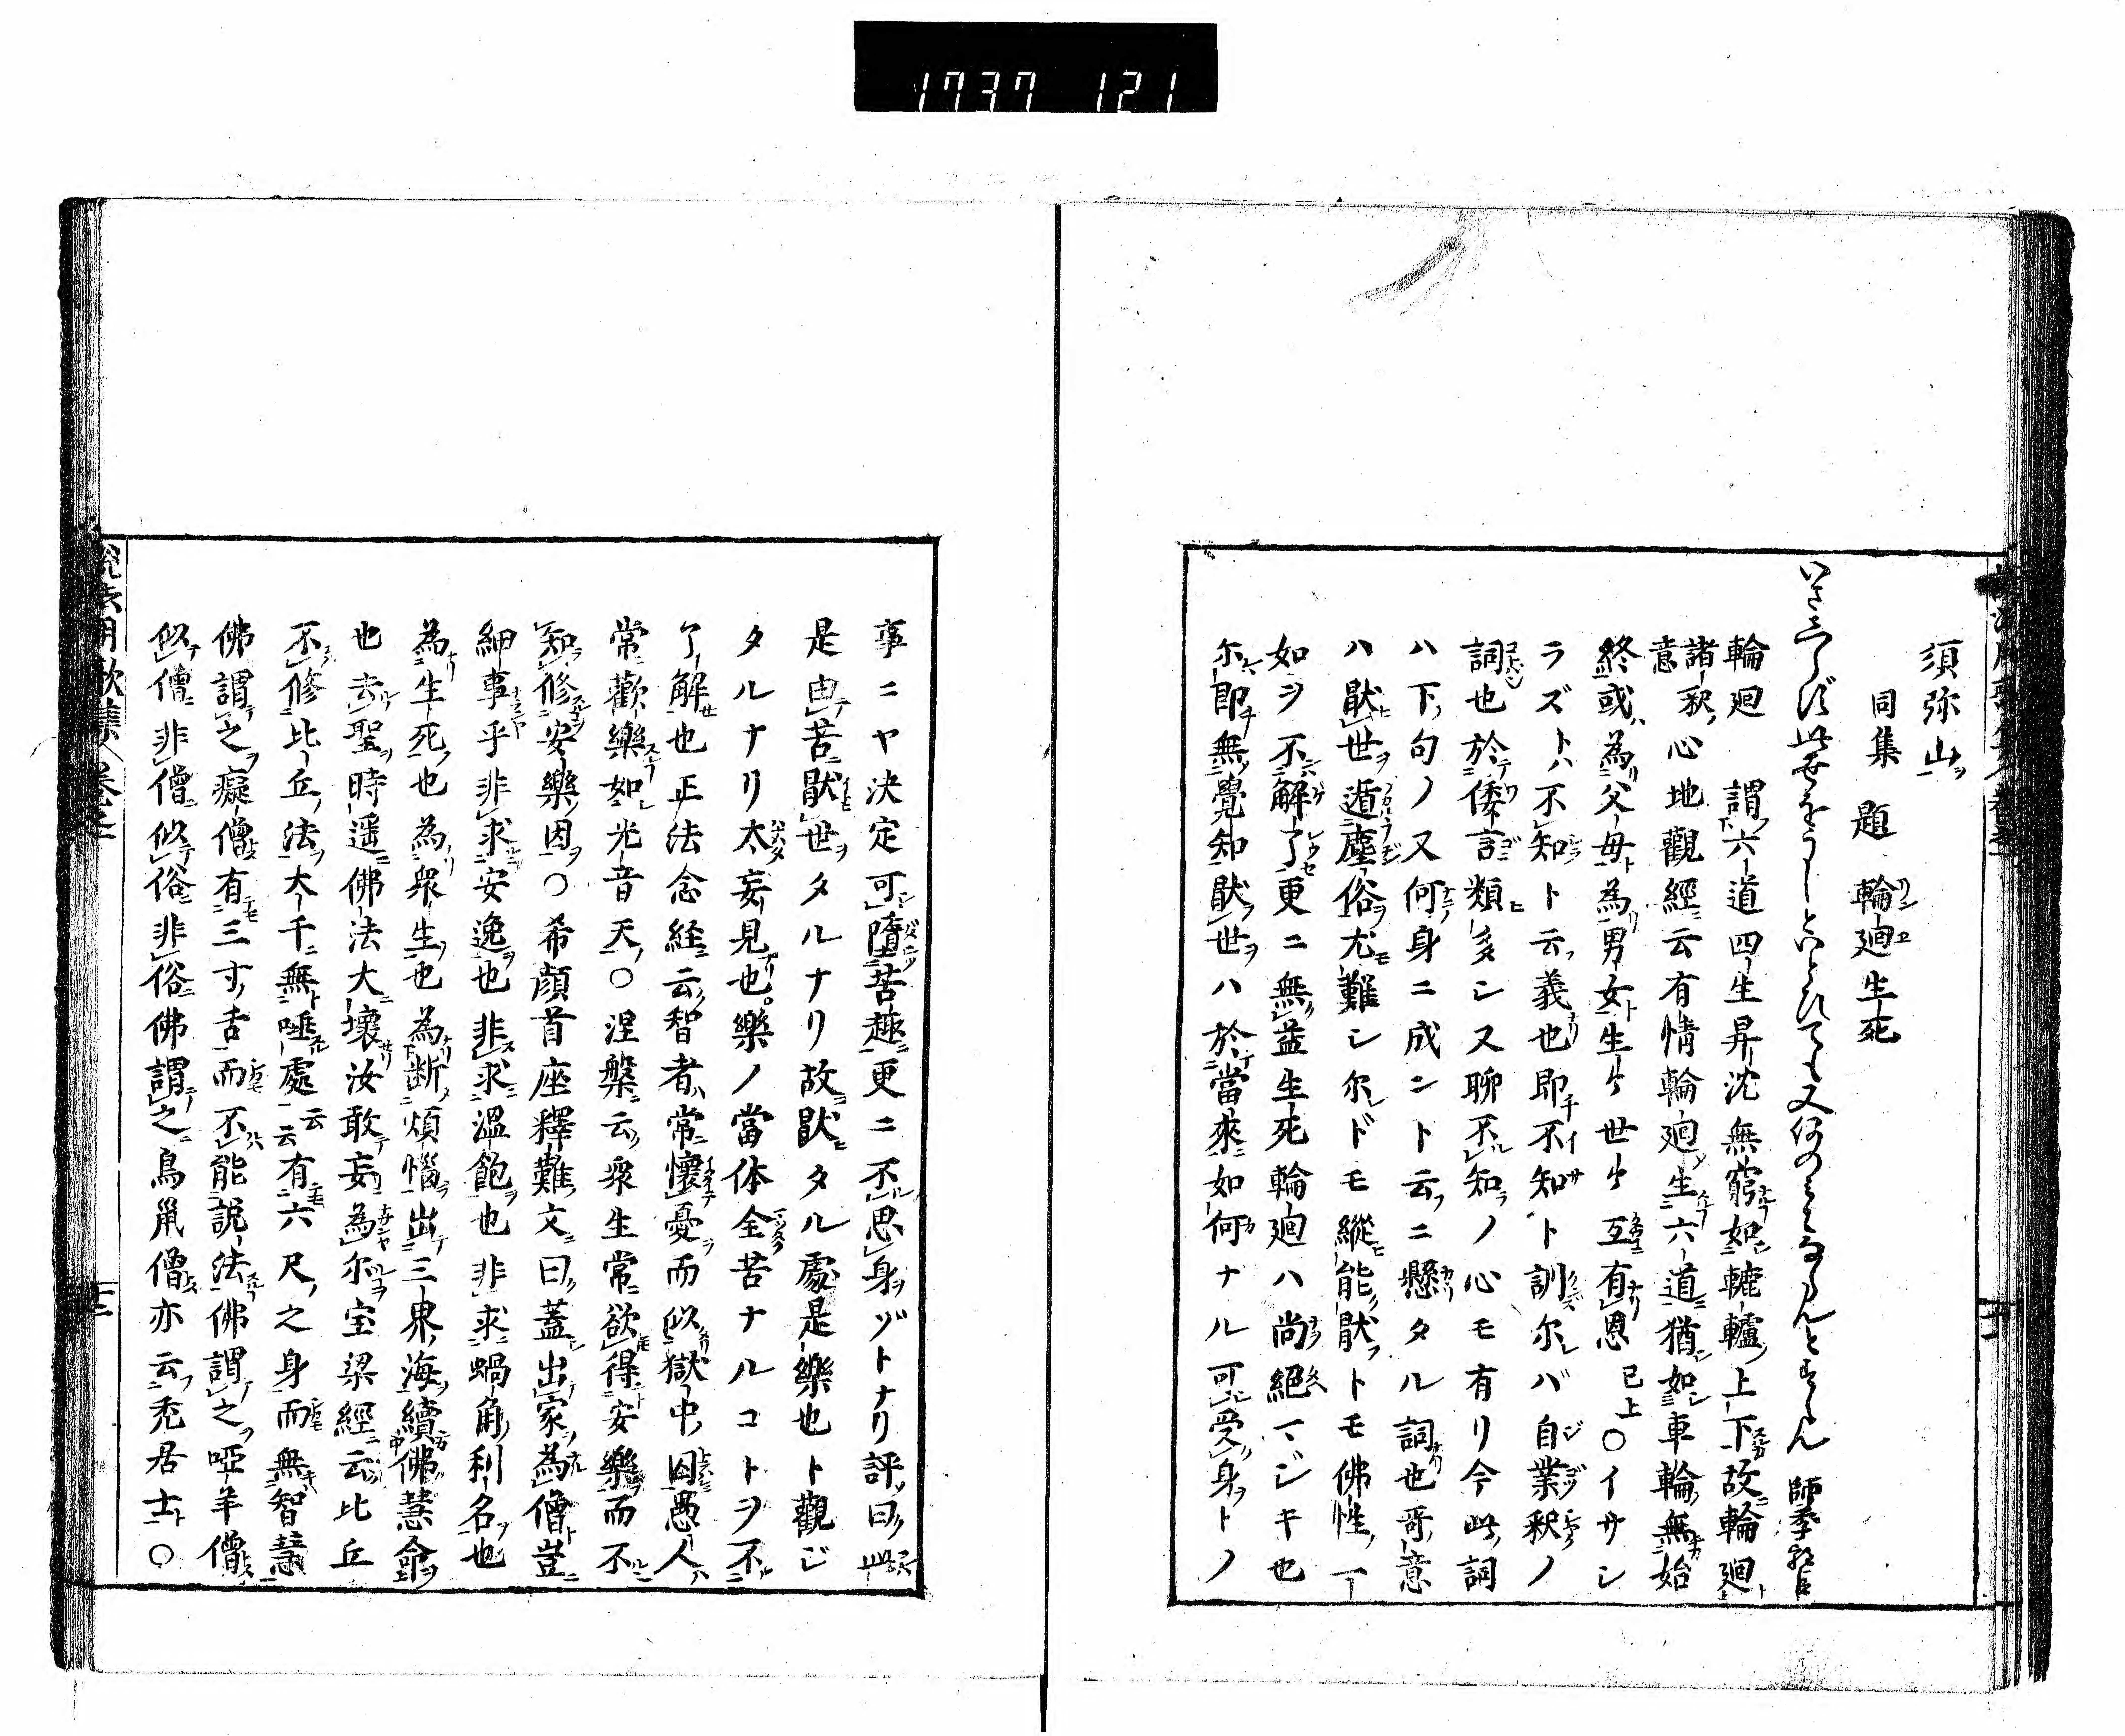 1737 121
須弥山ヲ
同集 題 輪廻生死
いさしらず此世をうしといとひても又何のミならんとすらん 師季
輪廻 謂六道四生昇沈無窮如轆轤上下故輪廻
諸釈意 心地觀經云有情輪廻生六道猶如車輪無始
終或為父母為男女生々世々互有恩 已上 ○イサシ
ラズトハ不知ト云義也即不知ト訓尓バ自業釈ノ
詞也於倭言類多シ又聊不知ノ心モ有リ今此詞
ハ下句ノ又何身ニ成ント云ニ懸タル詞也哥意
ハ猒世遁塵俗尤難シ尓ドモ縱能猒トモ佛性一丁
如ヲ不解了更ニ無益生死輪廻ハ尚絕マジキ也
尓即無覺知猒世ハ於當來如何ナル可受身トノ
事ニヤ決定可墮苦趣更ニ不思身ゾトナリ評曰此
是由苦猒世タルナリ故猒タル處是樂也ト觀ジ
タルナリ太妄見也樂ノ當体全苦ナルコトヲ不
了解也正法念経云智者常懷憂而似獄中囚愚人
常歡樂如光音天○涅槃云衆生常欲得安樂而不
知修安樂因○希顔首座釋難文曰蓋出家為僧豈
細事乎非求安逸也非求溫飽也非求蝸角利名也
為生死也為衆生也為断煩惱出三界海續佛慧命
也去聖時遥佛法大壞汝敢妄為尓宝梁經云比丘
不修比丘法大千無唾處云云有六尺之身而無智慧
佛謂之癡僧有三寸舌而不能説法佛謂之啞羊僧
似僧非僧似俗非俗佛謂之鳥鼠僧亦云禿居士○